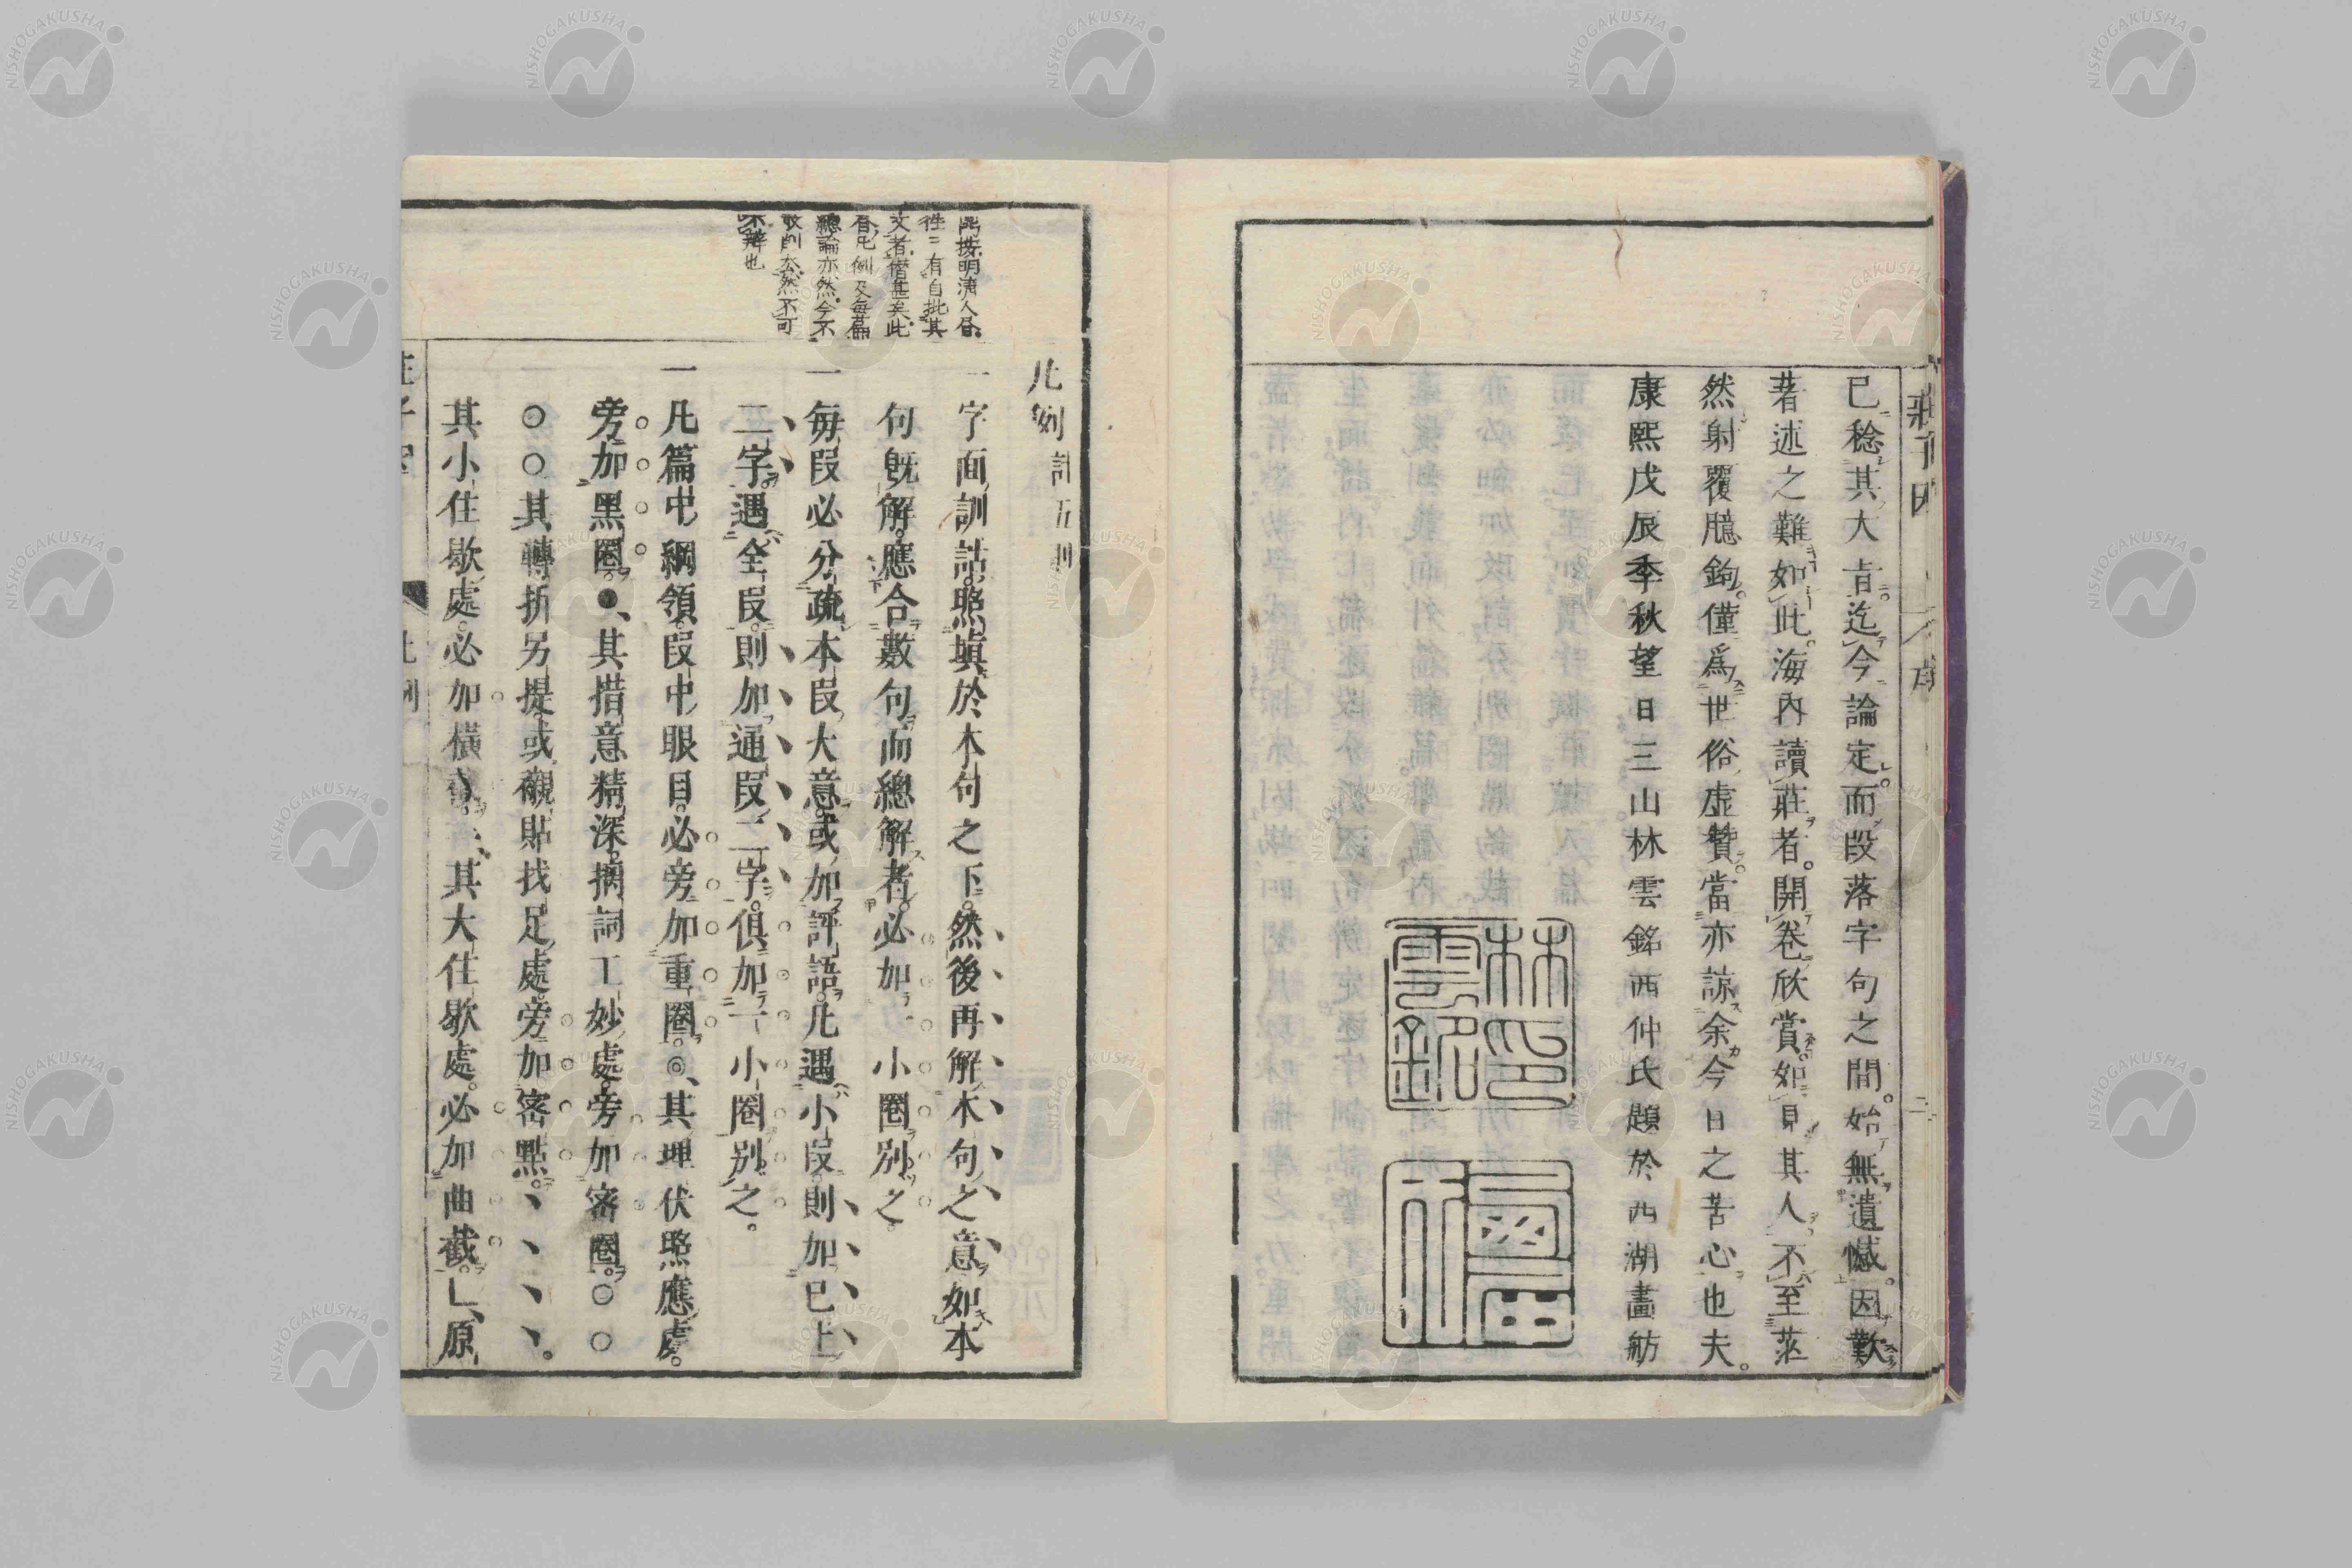 已稔其大旨迄今論定而段落字句之間始無遺憾因歎
著述之難如此海內讀莊者開卷欣賞如見其人不至茫
然射覆臆鉤僅爲世俗虛贊當亦諒余今日之苦心也夫
康熙戊辰季秋望日三山林雲銘西仲氏題於西湖畫舫
林雲銘印
西仲
凡例計五則
一字面訓詁照塡於本句之下然後再解本句之意如本
句旣解應合數句而總解者必加一小圈別之
一每段必分疏本段大意或加評語凡遇小段則加已上
二字遇全段則加通段二字俱加一小圈別之
一凡篇中綱領段中眼目必旁加重圈◎其埋伏照應處
旁加黑圈●其措意精深摛詞工妙處旁加密圈○○
○○其轉折另提或襯貼找足處旁加密點、、、、
其小住歇處必加橫截一其大住歇處必加曲截乚原
按明淸人屠
往二有自批其
文者僭甚矣此
看凡例及每篇
總論亦然今不
敢削公然不可
不辨也
NISHOGAKUSHA